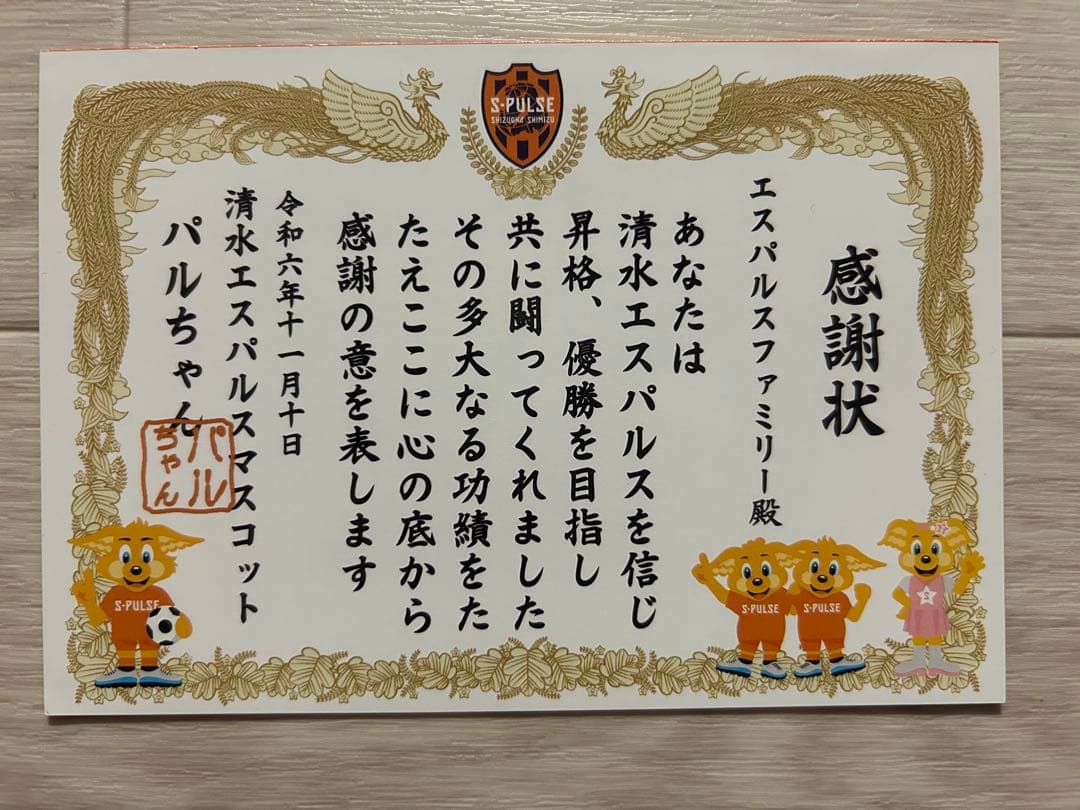 S-PULSE
SHIZUOKA SHIMIZU
感謝状
エスパルスファミリー殿
あなたは
清水エスパルスを信じ
昇格、優勝を目指し
共に闘ってくれました
その多大なる功績をた
たえここに心の底から
感謝の意を表します
令和六年十一月十日
清水エスパルスマスコット
パルちゃん
パル
ちゃん
S-PULSE
S-PULSE
S-PULSE
S